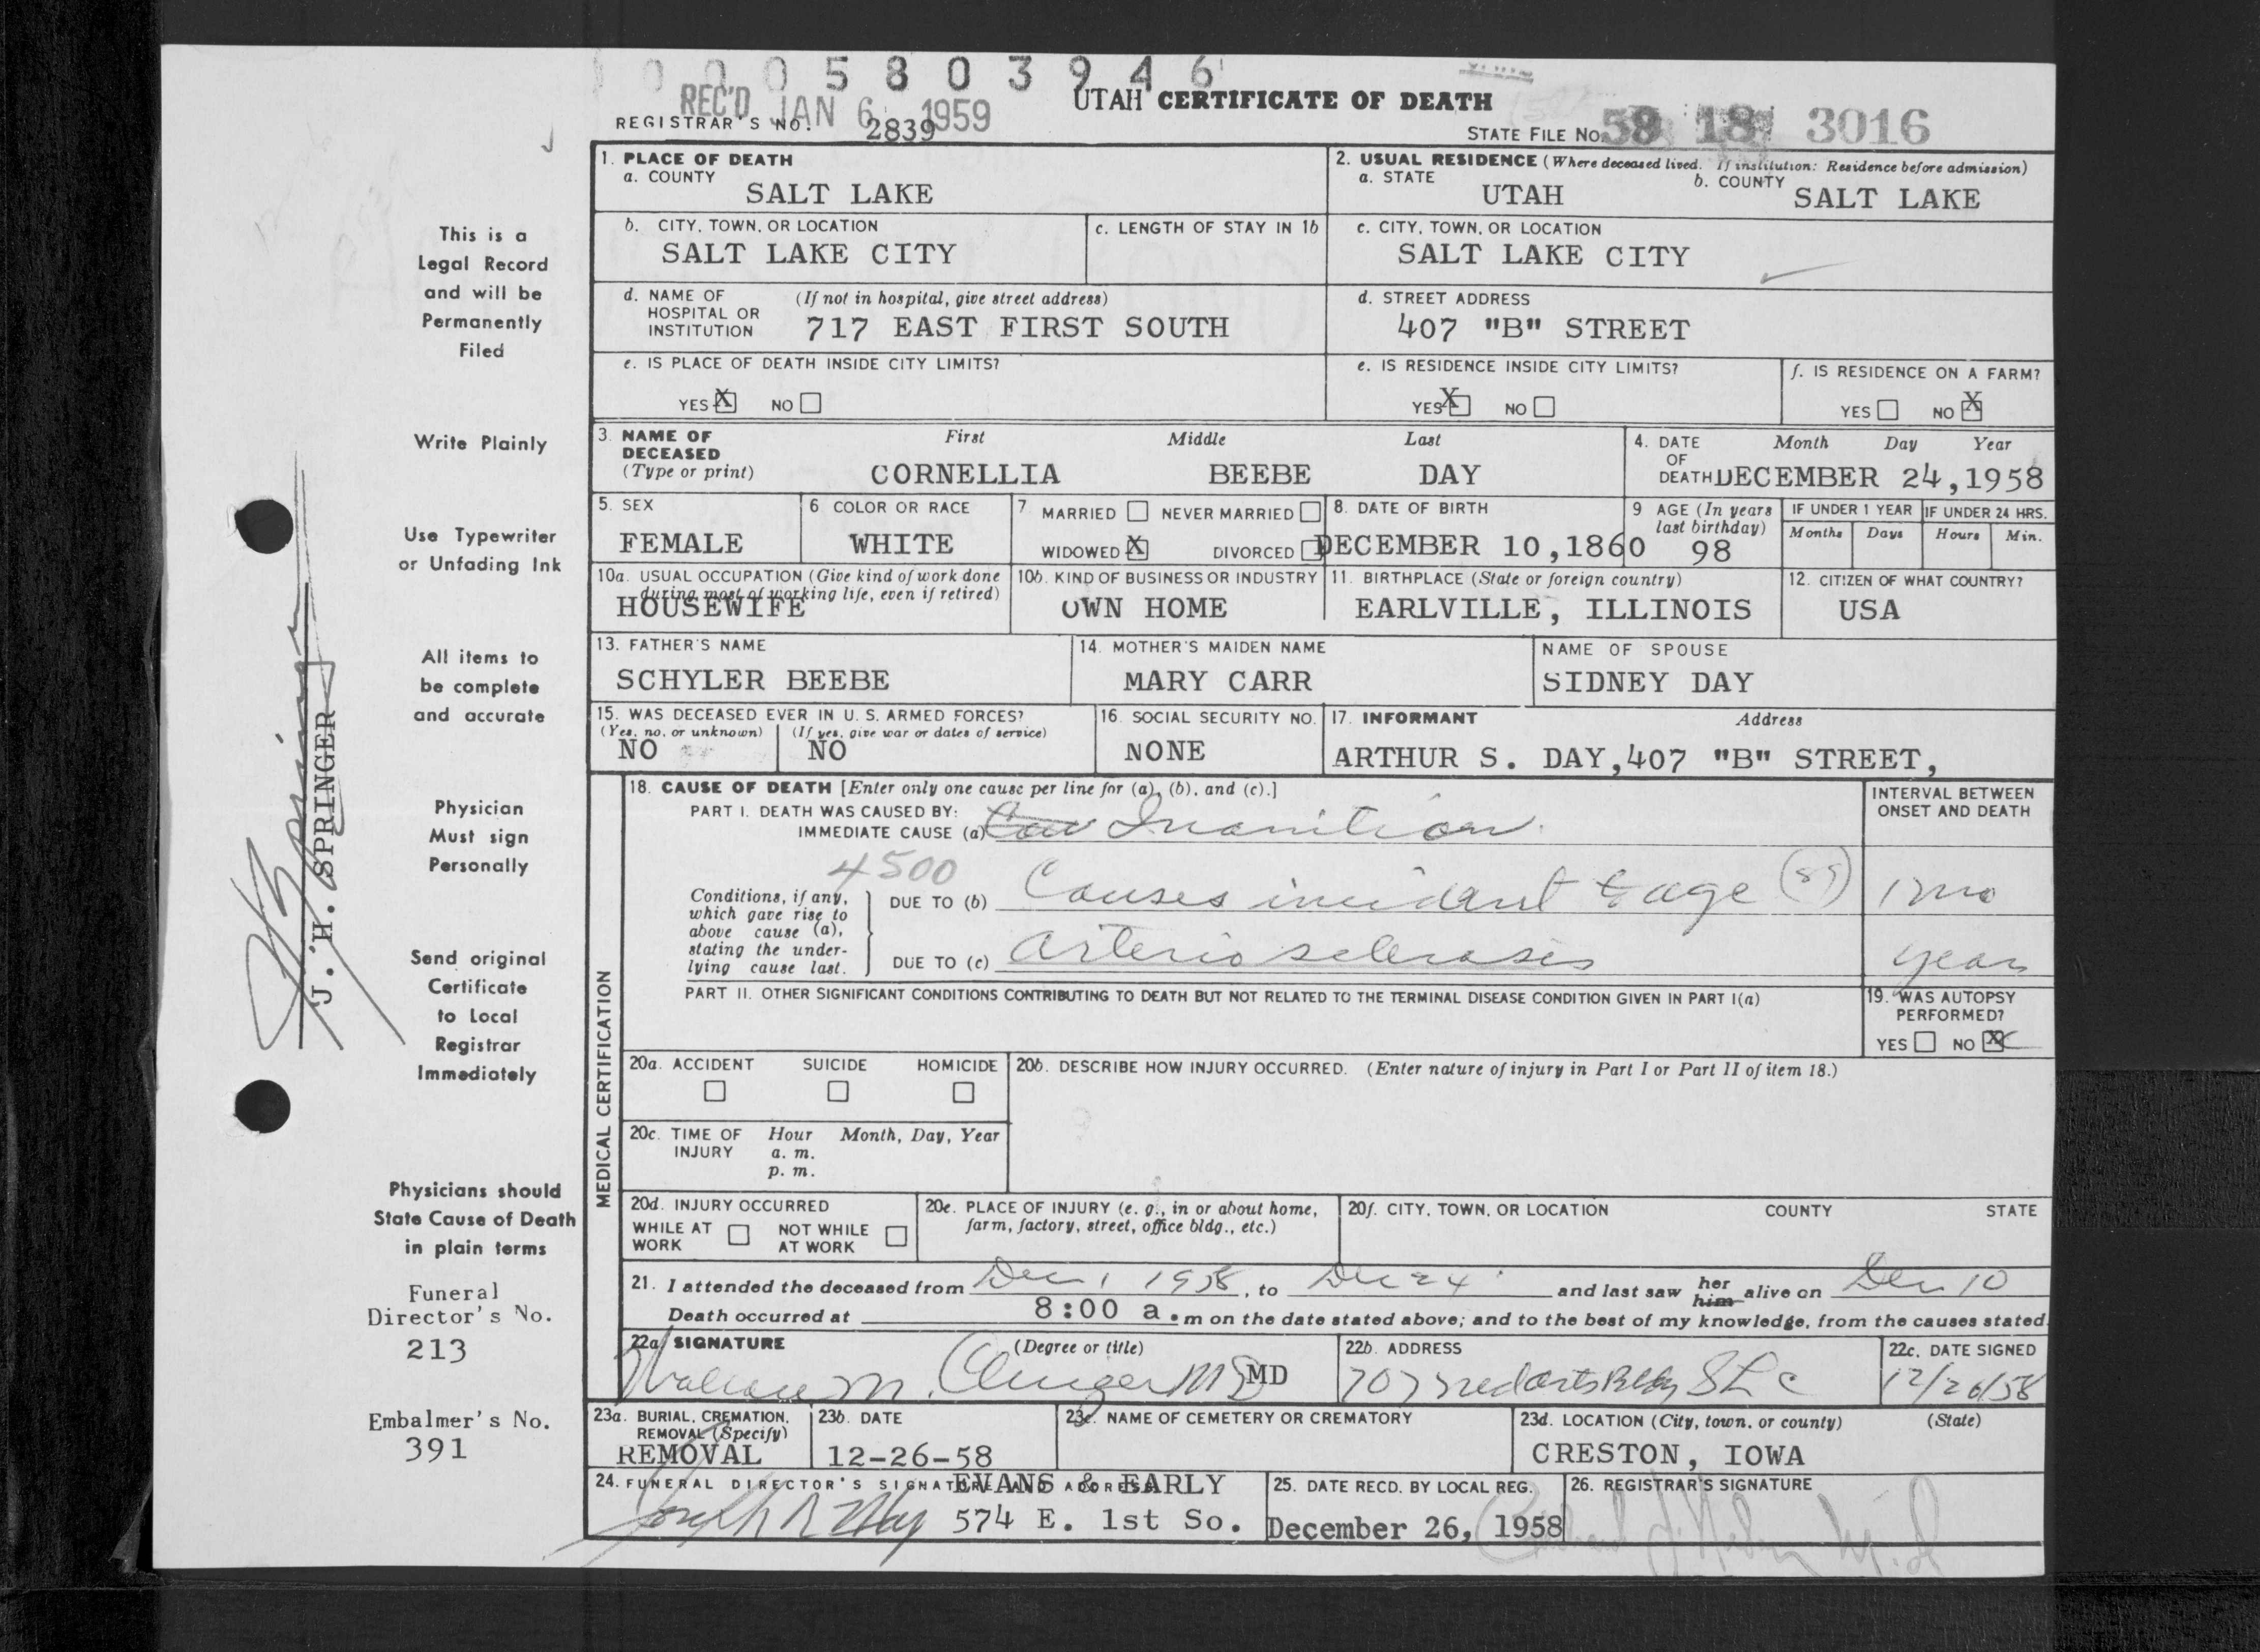 0 0 0 5 8 0 3 9 4 6
REC'D JAN 6 1959
UTAH CERTIFICATE OF DEATH
REGISTRAR'S NO. 2839
STATE FILE NO. 58 18 3016
1. PLACE OF DEATH
a. COUNTY
SALT LAKE
2. USUAL RESIDENCE (Where deceased lived. If institution: Residence before admission)
a. STATE
UTAH
b. COUNTY
SALT LAKE
b. CITY, TOWN, OR LOCATION
SALT LAKE CITY
c. LENGTH OF STAY IN 1b
c. CITY, TOWN, OR LOCATION
SALT LAKE CITY
d. NAME OF HOSPITAL OR INSTITUTION
(If not in hospital, give street address)
717 EAST FIRST SOUTH
d. STREET ADDRESS
407 "B" STREET
e. IS PLACE OF DEATH INSIDE CITY LIMITS?
YES X NO
e. IS RESIDENCE INSIDE CITY LIMITS?
YES X NO
f. IS RESIDENCE ON A FARM?
YES NO X
3. NAME OF DECEASED
(Type or print)
First Middle Last
CORNELLIA BEEBE DAY
4. DATE OF DEATH
Month Day Year
DECEMBER 24,1958
5. SEX
FEMALE
6 COLOR OR RACE
WHITE
7 MARRIED NEVER MARRIED
WIDOWED X DIVORCED
8. DATE OF BIRTH
DECEMBER 10,1860
9 AGE (In years last birthday)
98
IF UNDER 1 YEAR
Months Days
IF UNDER 24 HRS.
Hours Min.
10a. USUAL OCCUPATION (Give kind of work done during most of working life, even if retired)
HOUSEWIFE
10b. KIND OF BUSINESS OR INDUSTRY
OWN HOME
11. BIRTHPLACE (State or foreign country)
EARLVILLE, ILLINOIS
12. CITIZEN OF WHAT COUNTRY?
USA
13. FATHER'S NAME
SCHYLER BEEBE
14. MOTHER'S MAIDEN NAME
MARY CARR
NAME OF SPOUSE
SIDNEY DAY
15. WAS DECEASED EVER IN U. S. ARMED FORCES?
(Yes, no, or unknown) (If yes, give war or dates of service)
NO NO
16. SOCIAL SECURITY NO.
NONE
17. INFORMANT Address
ARTHUR S. DAY,407 "B" STREET,
MEDICAL CERTIFICATION
18. CAUSE OF DEATH [Enter only one cause per line for (a), (b), and (c).]
PART I. DEATH WAS CAUSED BY:
IMMEDIATE CAUSE (a) Inanition
INTERVAL BETWEEN ONSET AND DEATH
4500
Conditions, if any, which gave rise to above cause (a), stating the underlying cause last.
DUE TO (b) Causes incident to age
1 mo
DUE TO (c) arterio sclerosis
years
PART II. OTHER SIGNIFICANT CONDITIONS CONTRIBUTING TO DEATH BUT NOT RELATED TO THE TERMINAL DISEASE CONDITION GIVEN IN PART I(a)
19. WAS AUTOPSY PERFORMED?
YES NO X
20a. ACCIDENT SUICIDE HOMICIDE
20b. DESCRIBE HOW INJURY OCCURRED. (Enter nature of injury in Part I or Part II of item 18.)
20c. TIME OF INJURY
Hour Month, Day, Year
a. m.
p. m.
20d. INJURY OCCURRED
WHILE AT WORK NOT WHILE AT WORK
20e. PLACE OF INJURY (e. g., in or about home, farm, factory, street, office bldg., etc.)
20f. CITY, TOWN, OR LOCATION COUNTY STATE
21. I attended the deceased from Dec 1 1958, to Dec 24 and last saw her him alive on Dec 10
Death occurred at 8:00 a.m on the date stated above; and to the best of my knowledge, from the causes stated.
22a. SIGNATURE (Degree or title)
M. MD MD
22b. ADDRESS
707 Med Arts Bldg SLC
22c. DATE SIGNED
12/26/58
23a. BURIAL, CREMATION, REMOVAL (Specify)
REMOVAL
23b. DATE
12-26-58
23c. NAME OF CEMETERY OR CREMATORY
23d. LOCATION (City, town, or county) (State)
CRESTON, IOWA
24. FUNERAL DIRECTOR'S SIGNATURE AND ADDRESS
EVANS & EARLY
574 E. 1st So.
25. DATE RECD. BY LOCAL REG.
December 26, 1958
26. REGISTRAR'S SIGNATURE
This is a
Legal Record
and will be
Permanently
Filed
Write Plainly
Use Typewriter
or Unfading Ink
All items to
be complete
and accurate
Physician
Must sign
Personally
Send original
Certificate
to Local
Registrar
Immediately
Physicians should
State Cause of Death
in plain terms
Funeral
Director's No.
213
Embalmer's No.
391
J. H. SPRINGER